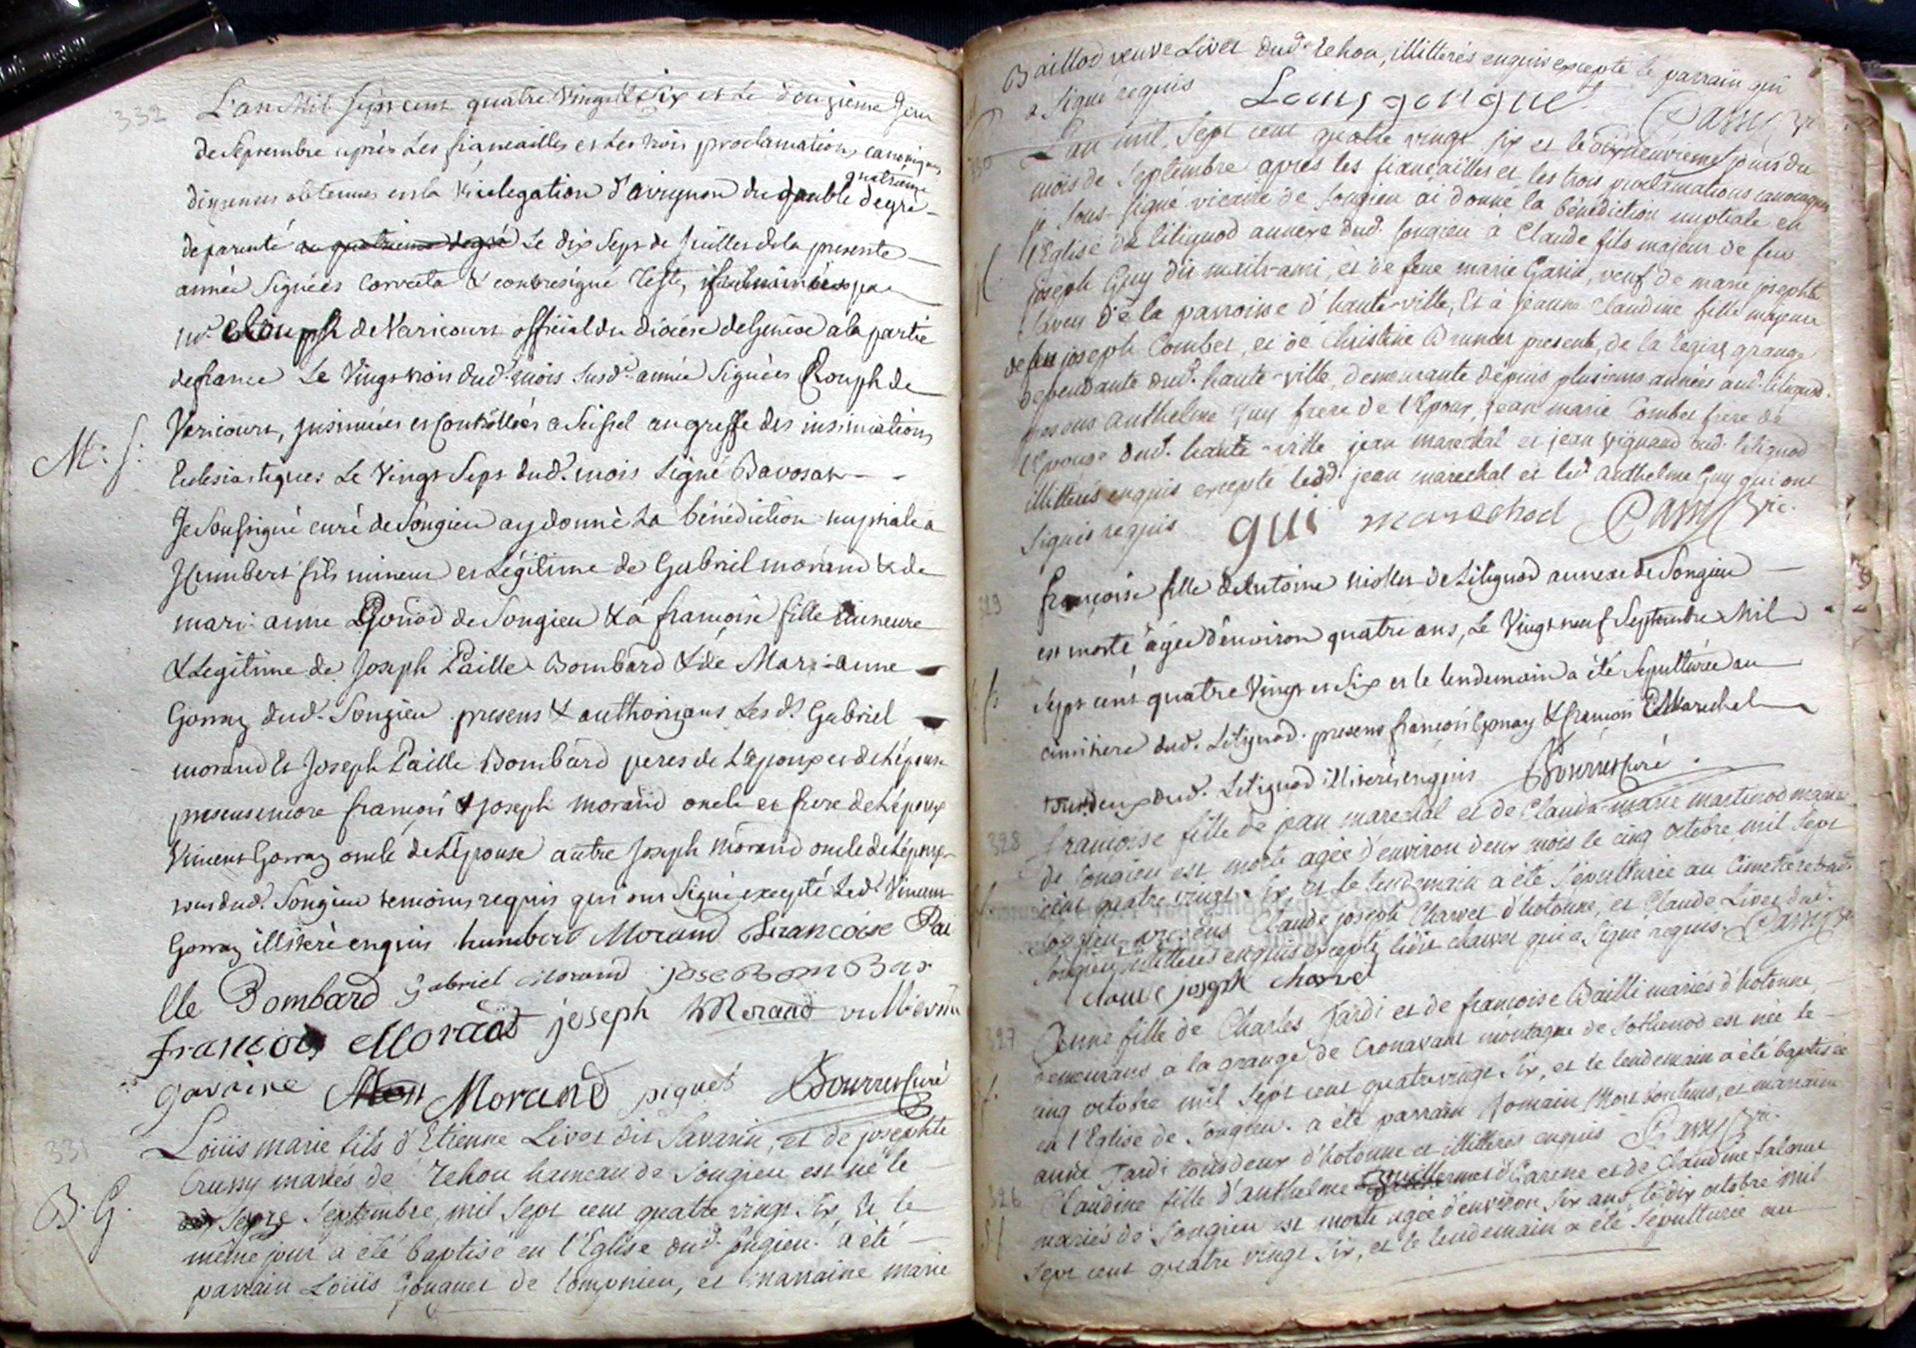 332
L'an Mil sept cent quatre vingt et six et le douzieme jour
de Septembre après les fiançailles et les trois proclamations canoniques
dispenses obtenues en la vicelegation d'avignon du double quatrieme degré
de parenté au quatrieme degré le dix sept de juillet de la presente
année signées Corveta & contresigné Teste, fulminées par
mr Rouph de Varicourt official du diocese de Genève a la partie
de france le vingt trois dud. mois susd. année signées Rouph de
Varicourt, insinuées et Contrôllées a Seissel au greffe des insinuations
Eclesiastiques le vingt sept dud. mois signé Bavosat
M. f.
Je soussigné curé de Songieu ay donné la bénédiction nuptiale a
Humbert fils mineur et légitime de Gabriel morand & de
mari anne Gonod de Songieu & a françoise fille mineure
& legitime de Joseph Paille Bombard & de Mari-anne
Gorraz dud. Songieu presens & authorisans les d. Gabriel
morand et Joseph Paille Bombard peres de L'époux et de L'épouse
presens encore françois & joseph morand oncle et frere de L'époux
Vincent Gorraz oncle de L'épouse autre Joseph morand oncle de L'époux
tous dud. Songieu temoins requis qui ont signé excepté led. Vincent
Gorraz illiteré enquis humbert Morand francoise Pai
lle Bombard gabriel morand jose Bom Bar
francois Morand joseph Morand
Morand piquet Bourret curé
331
Loüis marie fils d'Etienne Livet dit Savarin, et de josephte
Crussy mariés de Zehou hameau de Songieu est né le
B. G.
sept septembre, mil sept cent quatre vingt six, et le
même jour a été baptisé en l'Eglise dud. songieu. a été
parrain Loüis Gonguet de Lompnieu, et marraine marie
Baillod veuve Livet dud. Zehou, illitterés enquis excepté le parrain qui
a signé requis Louis gongue Pamy vic.
330
L'an mil sept cent quatre vingt six et le dixneuvieme jours du
mois de Septembre après les fiançailles et les trois proclamations canoniques
je sous-signé vicaire de Songieu ai donné la bénédiction nuptiale en
l'Eglise de litignod annexe dud. songieu à Claude fils majeur de feu
joseph Guy dit maitr-ami, et de feue marie Gavin, veuf de marie josephte
Laven de la parroisse d'haute-ville, et à jeanne Claudine fille majeure
de feu joseph Combet, et de Christine Brunet presente, de la grange
dependante dud. haute-ville, demeurante depuis plusieurs années aud. litignod.
presens anthelme Guy frere de l'Epoux, jean marie Combet frere de
l'Epouse dud. haute-ville jean marechal et jean vignand dud. litignod
illitterés enquis excepté lesd. jean marechal et led. anthelme Guy qui ont
signés requis gui marechod Pamy vic.
329
françoise fille d'Antoine niollet de Litignod annexe de Songieu
est morte âgée d'environ quatre ans, Le vingt neuf Septembre Mil
sept cent quatre vingt et six et le lendemain a été sepulturée au
cimitiere dud. Litignod. presens françois Gonay & françois Marechal
tous deux dud. Litignod illiterés enquis Bourret Curé.
328
françoise fille de jean marechal et de Claudia marie martinod mariés
de songieu est morte agée d'environ deux mois le cinq octobre mil sept
cent quatre vingt six et le lendemain a été sépulturée au Cimetiere dud.
songieu presens Claude joseph Charvet d'hotonne, et Claude Livet dud.
songieu illitterés enquis excepté ledit charvet qui a signé requis. Pamy vic.
claude joseph charvet
327
Anne fille de Charles Jardi et de françoise Bailli mariés d'hotonne,
demeurans à la grange de Cronavant montagne de Sothonod est née le
cinq octobre mil sept cent quatre vingt six, et le lendemain a été baptisée
en l'Eglise de Songieu. a été parrain Romain, et marraine
anne Jardi tous deux d'hotonne et illitteres enquis Pamy vic.
326
Claudine fille d'anthelme Guillermet d'Carene et de Claudine falavue
mariés de Songieu est morte agée d'environ six ans le dix octobre mil
sept cent quatre vingt six, et le lendemain a été sépulturée au